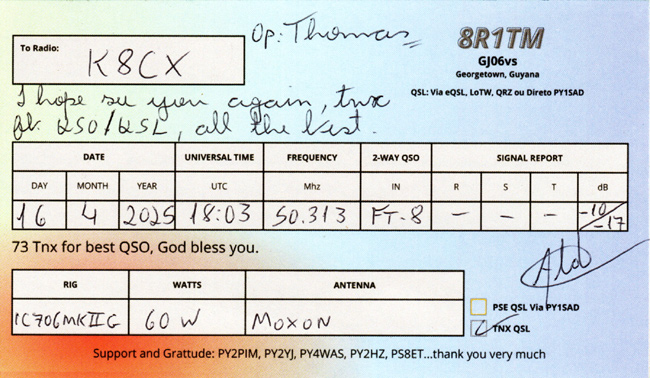 Op: Thomas
8R1TM
To Radio:
K8CX
GJ06vs
Georgetown, Guyana
QSL: Via eQSL, LoTW, QRZ ou Direto PY1SAD
I hope su you again, tnx
fb. QSO/QSL, all the best.
DATE UNIVERSAL TIME FREQUENCY 2-WAY QSO SIGNAL REPORT
DAY MONTH YEAR UTC Mhz IN R S T dB
16 4 2025 18:03 50.313 FT-8 - - - -10/-17
73 Tnx for best QSO, God bless you.
RIG WATTS ANTENNA
IC706MKIIG 60 W MOXON
PSE QSL Via PY1SAD
TNX QSL
Support and Grattude: PY2PIM, PY2YJ, PY4WAS, PY2HZ, PS8ET...thank you very much